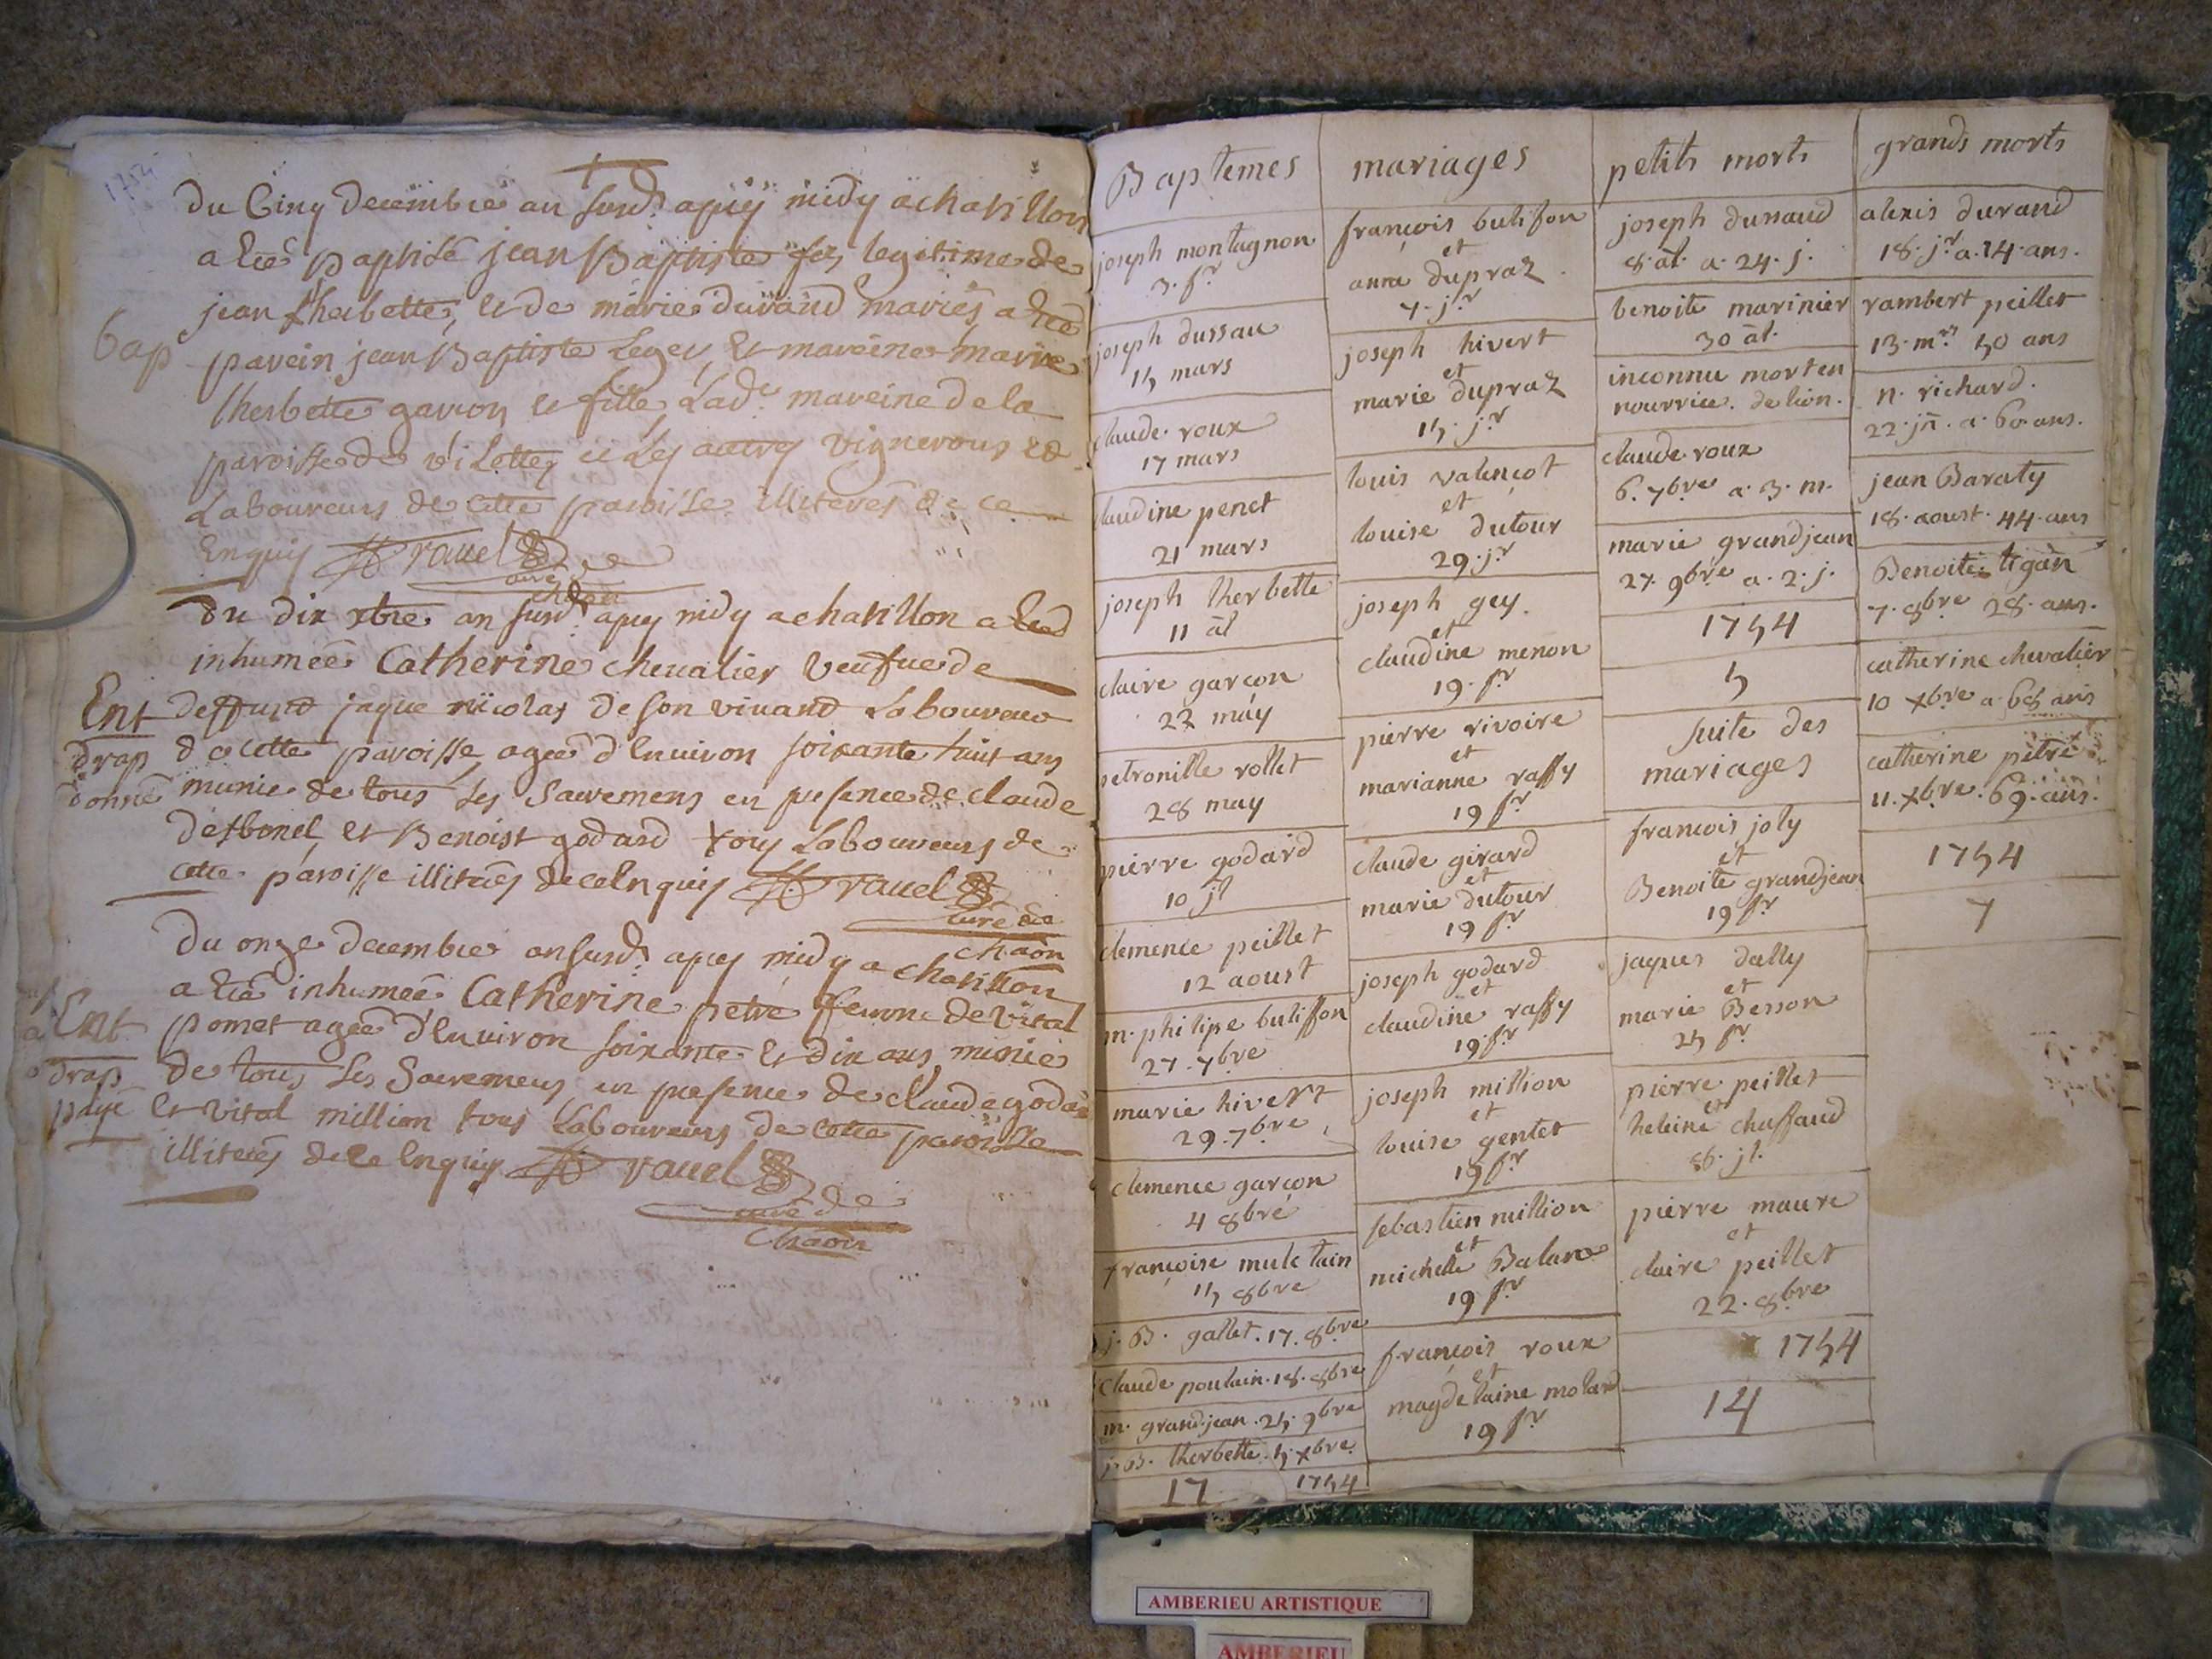 1754
du Cinq decembre an susd. apres midy a chatillon
a eté baptisé jean Baptiste fils legitime de
jean therbette, et de marie durand mariés a eté
Bap
parein jean Baptiste Leger, et mareine marie
therbette garcon et fille, Lad. mareine de la
paroisse de vilettes et Les autres vignerons et
Laboureurs de cette paroisse illiterés de ce
Enquis ravel
curé de
chaon
du dix xbre an susd. apres midy a chatillon a eté
inhumée Catherine chevalier veufue de
Ent
deffund jaque nicolas de son vivand Laboureur
drap
de cette paroisse, agée d'Environ soixante huit ans
donné
munie de tous Les Sacremens en presence de claude
et Benoist godard tous Laboureurs de
cette paroisse illiterés de ce Enquis ravel
curé de
chaon
du onze decembre an susd. apres midy a chatillon
a eté inhumée Catherine petre femme de vital
Ent
pomet agée d'Environ soixante et dix ans, munie
drap
de tous Les Sacremens en presence de claude godard
payé
et vital million tous Laboureurs de cette paroisse
illiterés de ce Enquis ravel
curé de
chaon
Baptemes
joseph montagnon
3. fr
joseph dussau
15 mars
claude roux
17 mars
claudine penet
21 mars
joseph therbette
11 al
claire garcon
22 may
petronille rollet
28 may
pierre godard
10 jt
clemence peillet
12 aoust
m. philipe buliffon
27. 7bre
marie hivert
29. 7bre
clemence garçon
4 8bre
françoise mulctain
15 8bre
j. B. gallet. 17. 8bre
Claude poulain. 18. 8bre
m. grandjean. 25. 9bre
j. B. therbette. 5. xbre
17 1754
mariages
françois bulifon
et
anne dupraz
7. jr
joseph hivert
et
marie dupraz
15. jr
louis valençot
et
louise dutour
29. jr
joseph gey.
et
claudine menon
19. fr
pierre rivoire
et
marianne raffy
19 fr
claude girard
et
marie dutour
19 fr
joseph godard
et
claudine raffy
19. fr
joseph million
et
louise gentet
19 fr
sebastien million
et
michelle Balance
19 fr
françois roux
et
magdelaine molard
19 fr
petits morts
joseph dussaud
8. al. a. 24. j.
benoite marinier
30 al.
inconnu mort en
nourrice. de lion.
claude roux
6. 7bre a. 3. m.
marie grandjean
27. 9bre a. 2. j.
1754
5
suite des
mariages
francois joly
et
Benoite grandjean
19 fr
jaques dally
et
marie Besson
25 fr
pierre peillet
et
heleine chaffaud
8. jt.
pierre maure
et
claire peillet
22. 8bre
1754
14
grands morts
alexis durand
18. jr a. 14. ans.
rambert peillet
13. mrs 50 ans
n. richard.
22. jn. a. 60. ans.
jean Baraty
18. aoust. 44. ans
Benoite tigan
7. 8bre 28. ans.
catherine chevalier
10 xbre a 68 ans
catherine petre
11. xbre. 69. ans.
1754
7
AMBERIEU ARTISTIQUE
AMBERIEU